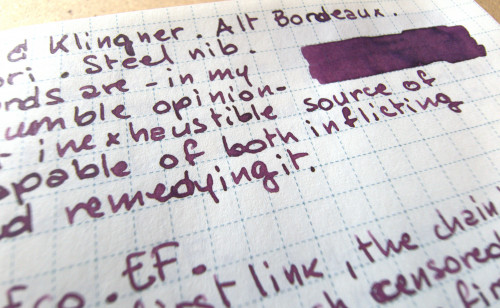 & Klingner. Alt Bordeaux.
ori. Steel nib.
nds are - in my
umble opinion -
r inexhaustible source of
apable of both inflicting
d remedying it.
Eco. EF.
first link, the chain
censored